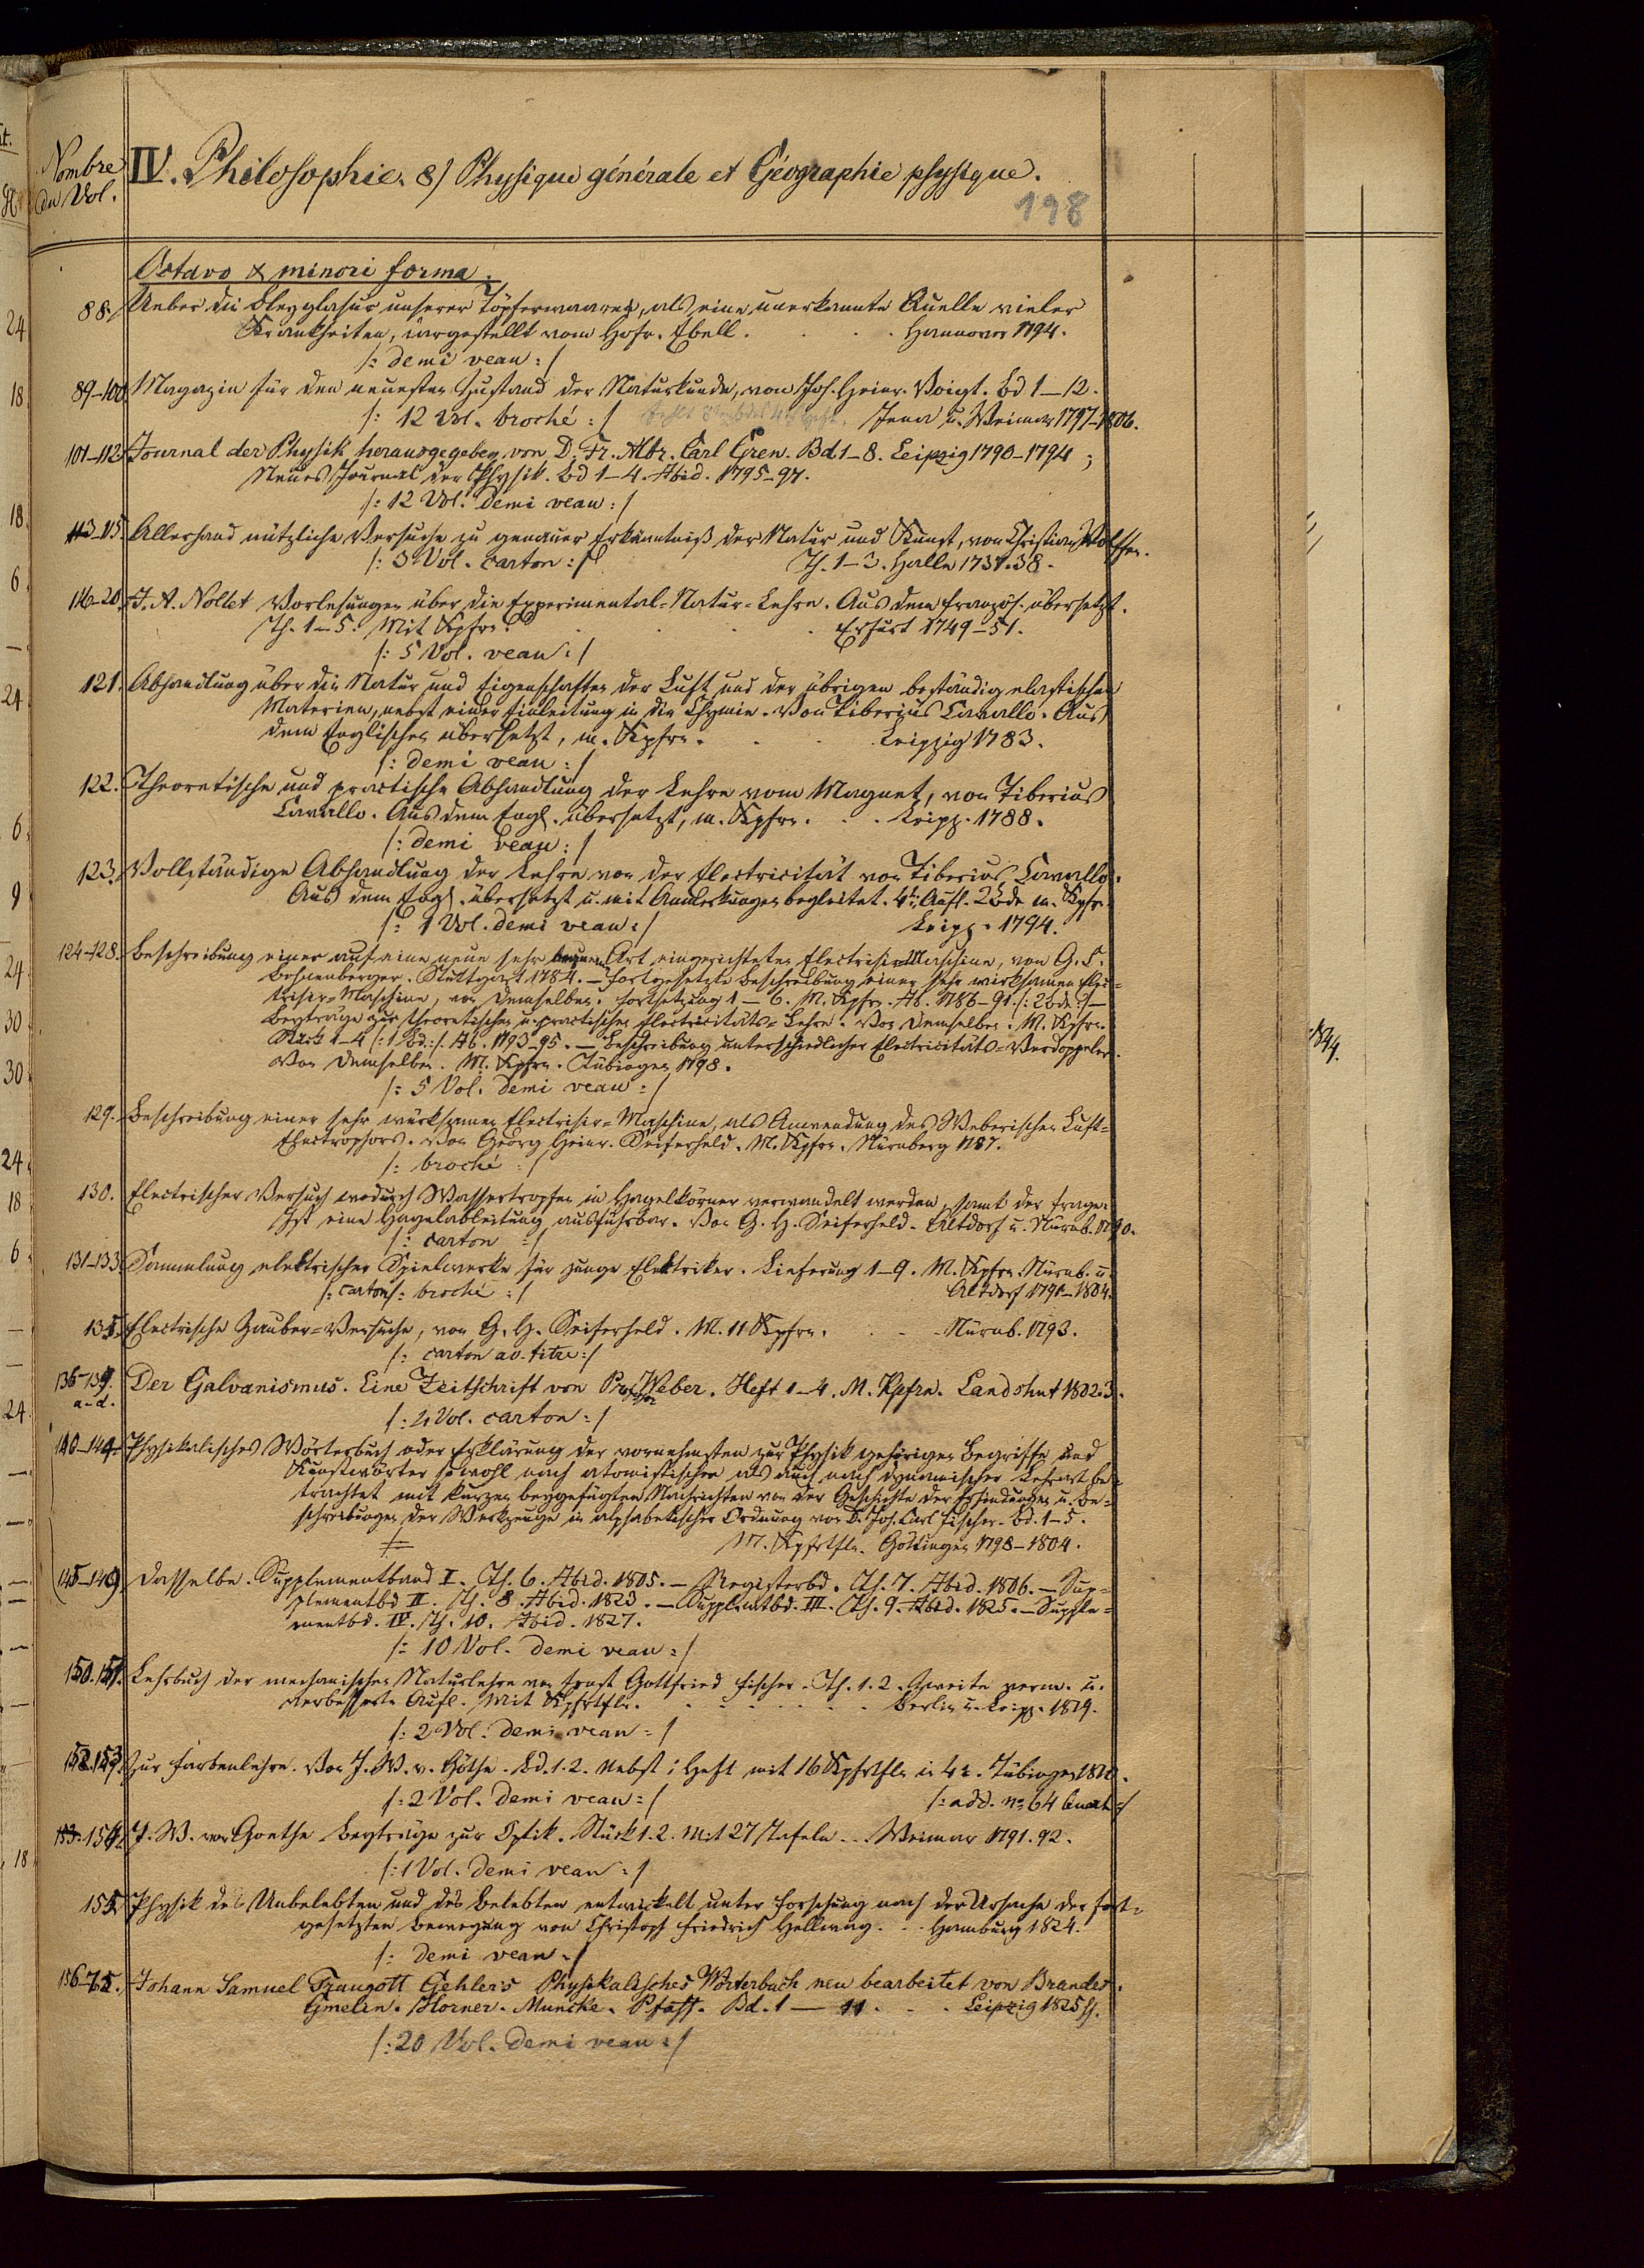 Nombre
du Vol.
IV. Philosophie. 8) Physique générale et Géographie physique.
198
Octavo & minori forma.
88. Ueber die Bleyglasur unserer Töpferwaaren, als eine unerkannte Quelle vieler
Krankheiten, dargestellt vom Hofr. Ebell. Hannover 1794.
/: demi veau :/
89-100 Magazin für den neuesten Zustand der Naturkunde, von Joh. Heinr. Voigt. Bd 1-12.
/: 12 Vol. broché :/ fehlt Jena u. Weimar 1797-1806.
101-112 Journal der Physik herausgegeben von D. Fr. Albr. Carl Gren. Bd. 1-8. Leipzig 1790-1794;
Neues Journal der Physik. Bd 1-4. Ibid. 1795-97.
/: 12 Vol. demi veau :/
113-115. Allerhand nützliche Versuche zu genauer Erkänntniß der Natur und Kunst, von Christian Wolffen.
/: 3 Vol. carton :/ Th. 1-3. Halle 1737.38.
116-20 J. A. Nollet Vorlesungen über die Experimental-Natur-Lehre. Aus dem französ. übersetzt.
Th. 1-5. Mit Kpfrn. Erfurt 1749-51.
/: 5 Vol. veau :/
121. Abhandlung über die Natur und Eigenschaften der Luft und der übrigen beständig elastischen
Materien, nebst einer Einleitung in die Chymie. Von Tiberius Cavallo. Aus
dem Englischen übersetzt, m. Kpfrn. Leipzig 1783.
/: demi veau :/
122. Theoretische und practische Abhandlung der Lehre vom Magnet, von Tiberius
Cavallo. Aus dem Engl. übersetzt, m. Kpfrn. Leipz. 1788.
/: demi veau :/
123. Vollständige Abhandlung der Lehre von der Electricität von Tiberius Cavallo.
Aus dem Engl. übersetzt u. mit Anmerkungen begleitet. 4te Aufl. 2 Bde m. Kpfrn.
/: 1 Vol. demi veau :/ Leipz. 1794.
124-128. Beschreibung einer auf eine neue sehr bequeme Art eingerichteten Electrisir-Maschine, von G. C.
Bohnenberger. Stuttgart 1784. — Fortgesetzte Beschreibung einer sehr wirksamen Elec-
trisir-Maschine, von Demselben. Fortsetzung 1-6. M. Kpfrn. Ib. 1786-91. /: 2 Bde :/ —
Beyträge zur theoretischen u. practischen Electricitäts-Lehre. Von Demselben. M. Kpfrn.
Stück 1-4 /: 1 Bd :/. Ib. 1793-95. — Beschreibung unterschiedlicher Electricitäts-Verdoppeler.
Von Demselben. M. Kpfrn. Tübingen 1798.
/: 5 Vol. demi veau :/
129. Beschreibung einer sehr würksamen Electrisir-Maschine, als Anwendung des Weberischen Luft-
Electrophors. Von Georg Heinr. Seiferheld. M. Kpfrn. Nürnberg 1787.
/: broché :/
130. Electrischer Versuch wodurch Wassertropfen in Hagelkörner verwandelt werden, samt der Frage:
Ist eine Hagelableitung ausführbar. Von G. H. Seiferheld. Altdorf u. Nürnb. 1790.
/: carton :/
131-133. Sammlung elektrischer Spielwerke für junge Elektriker. Lieferung 1-9. M. Kpfrn. Nürnb. u.
/: carton /: broché :/ Altdorf 1791-1804.
135. Electrische Zauber-Versuche, von G. H. Seiferheld. M. 11 Kpfrn. Nürnb. 1793.
/: carton av. titre :/
136-139. Der Galvanismus. Eine Zeitschrift von Professor Weber. Heft 1-4. M. Kpfrn. Landshut 1802.3.
a-d.
/: 4 Vol. carton :/
140-144. Physikalisches Wörterbuch oder Erklärung der vornehmsten zur Physik gehörigen Begriffe und
Kunstwörter sowohl nach atomistischer als auch nach dynamischer Lehrart be-
trachtet mit kurzen beygefügten Nachrichten von der Geschichte der Erfindungen u. Be-
schreibungen der Werkzeuge in alphabetischer Ordnung von D. Joh. Carl Fischer. Bd. 1-5.
M. Kpfrtfln. Göttingen 1798-1804.
145-149. Dasselbe. Supplementband I. Th. 6. Ibid. 1805. — Registerbd. Th. 7. Ibid. 1806. — Sup-
plementbd II. Th. 8. Ibid. 1823. — Supplemtbd. III. Th. 9. Ibid. 1825. — Supple-
mentbd. IV. Th. 10. Ibid. 1827.
/: 10 Vol. demi veau :/
150.151. Lehrbuch der mechanischen Naturlehre von Ernst Gottfried Fischer. Th. 1.2. Zweite verm. u.
verbesserte Aufl. Mit Kpfrtfln. Berlin u. Leipz. 1819.
/: 2 Vol. demi veau :/
152.153. Zur Farbenlehre. Von J. W. v. Göthe. Bd. 1.2. Nebst 1 Heft mit 16 Kpfrtfln in 4to. Tübingen 1810.
/: 2 Vol. demi veau :/ /: add. no. 64 Quart :/
154. J. W. von Goethe Beyträge zur Optik. Stück 1.2. Mit 27 Tafeln. Weimar 1791.92.
/: 1 Vol. demi veau :/
155. Physik des Unbelebten und des Belebten entwickelt unter Forschung nach der Ursache der fort-
gesetzten Bewegung von Christoph Friedrich Hellwag. Hamburg 1824.
/: demi veau :/
156-75. Johann Samuel Traugott Gehler's Physikalisches Wörterbuch neu bearbeitet von Brandes.
Gmelin. Horner. Muncke. Pfaff. Bd. 1 — 11. Leipzig 1825 ff.
/: 20 Vol. demi veau :/